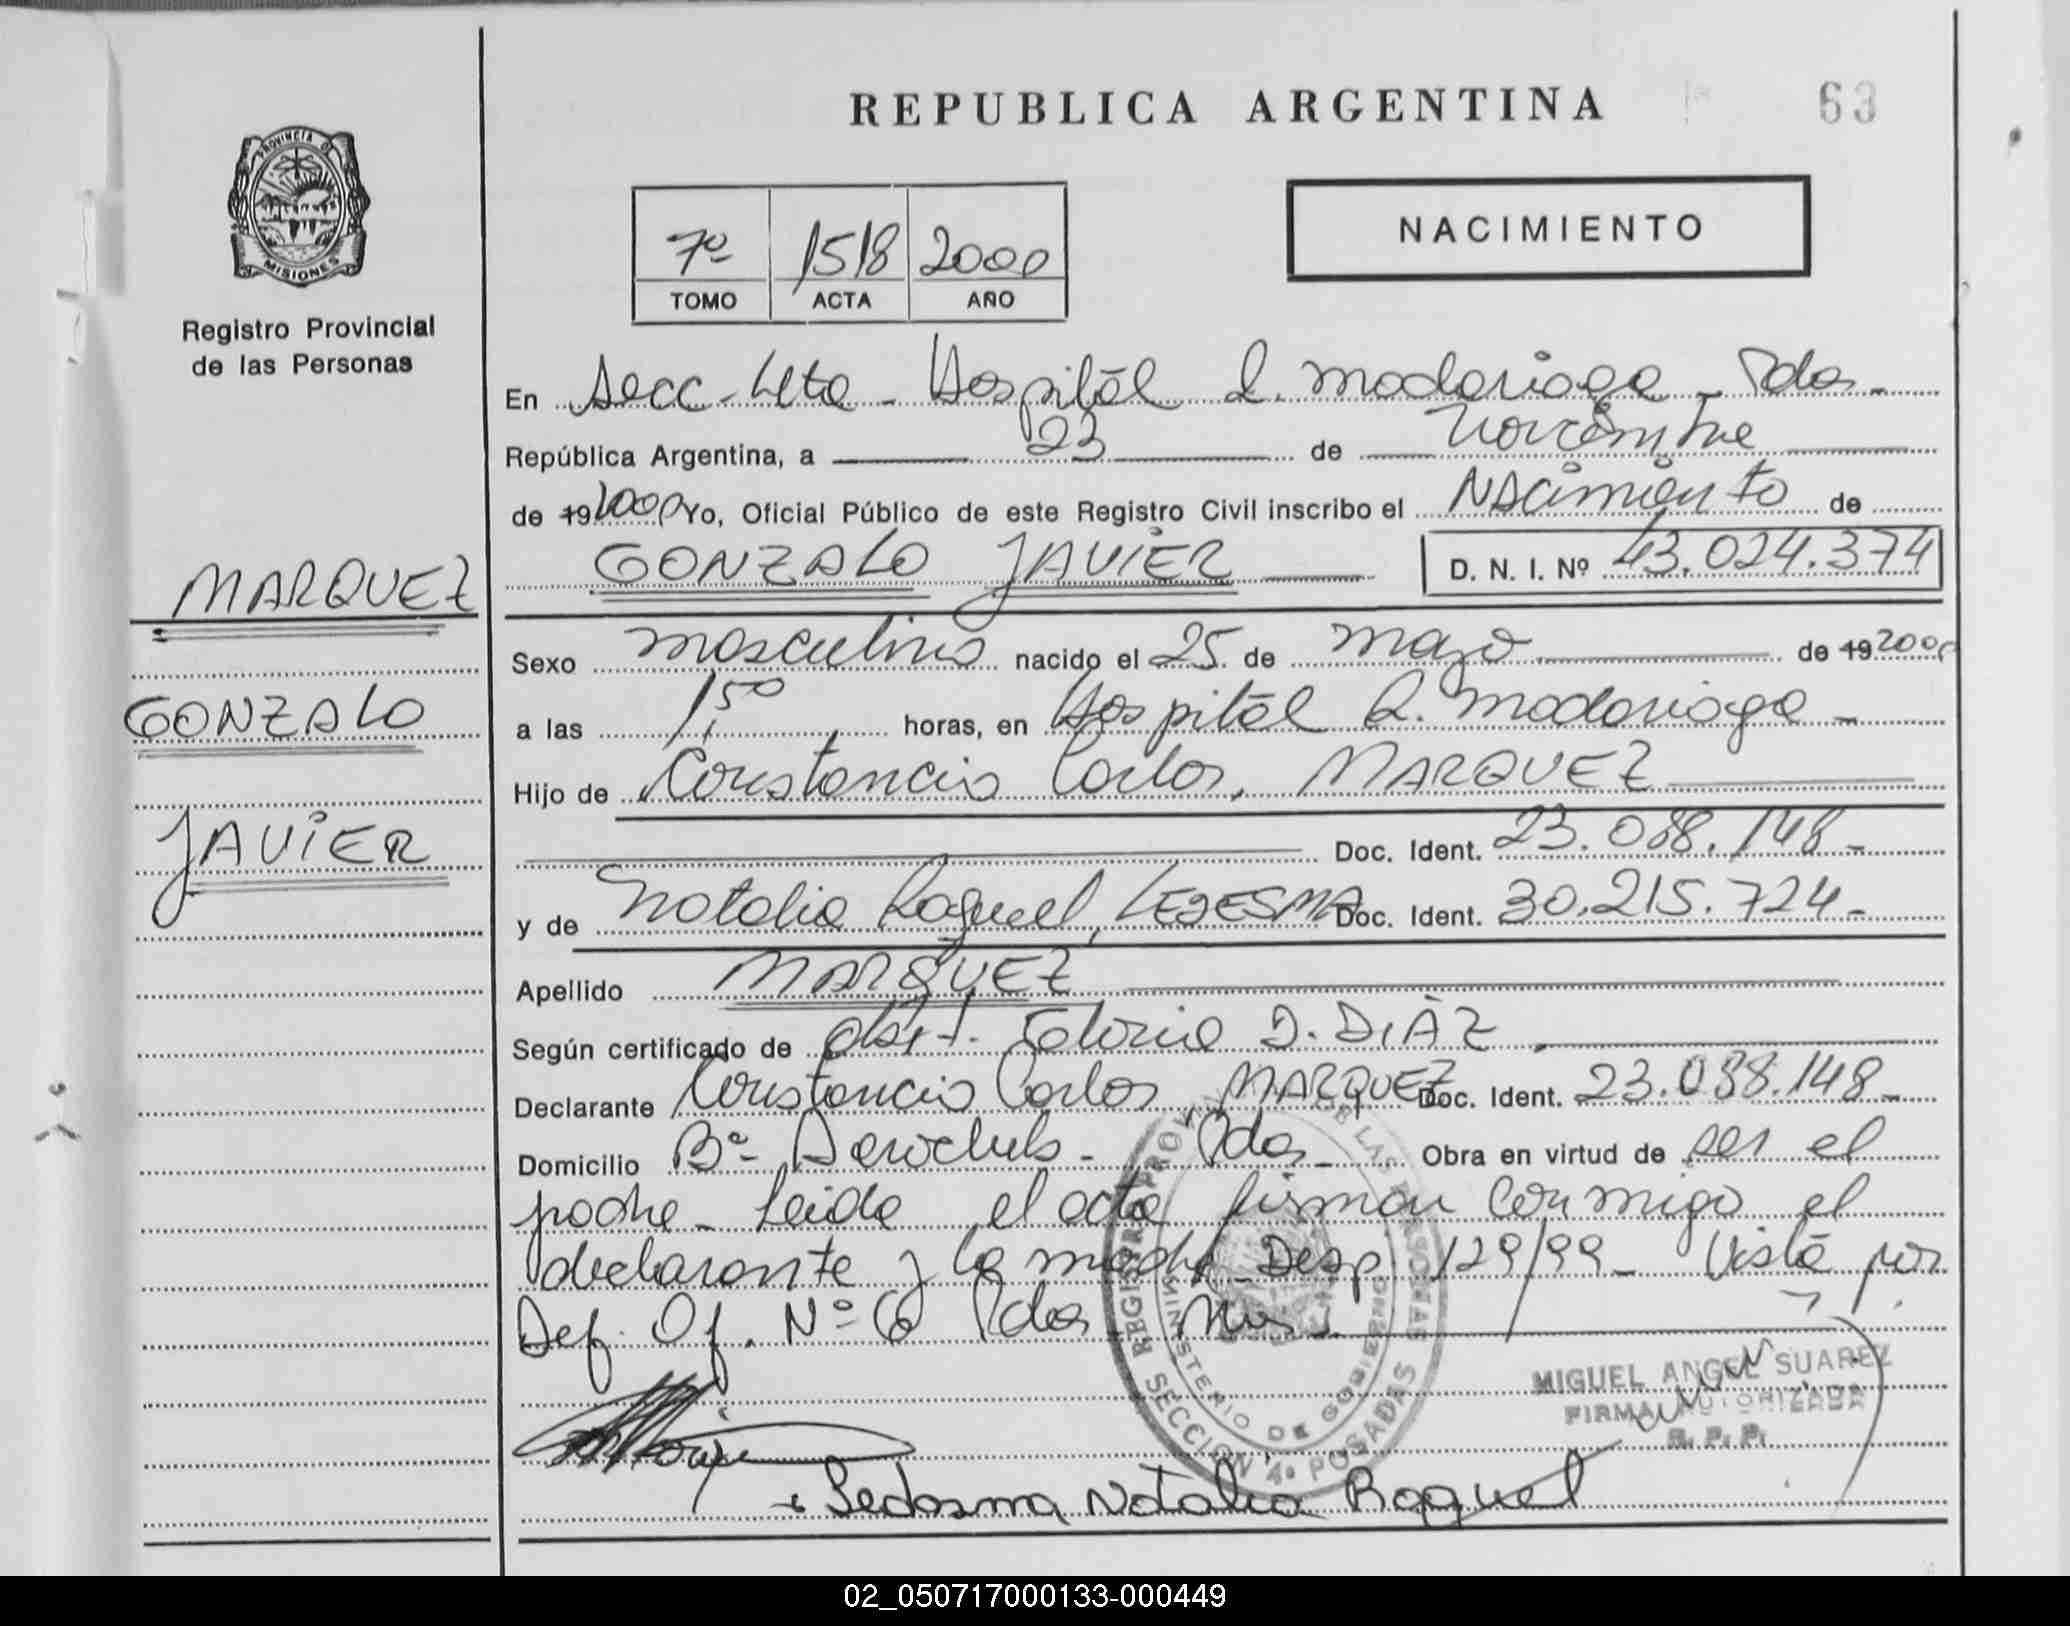 REPUBLICA ARGENTINA
63
PROVINCIA DE
MISIONES
Registro Provincial
de las Personas
7º 1518 2000
TOMO ACTA AÑO
NACIMIENTO
En Secc. 4ta - Hospital R. Madariaga - Pdas -
República Argentina, a 23 de Noviembre
de 19 2000 Yo, Oficial Público de este Registro Civil inscribo el Nacimiento de
GONZALO JAVIER D. N. I. Nº 43.024.374
MARQUEZ
GONZALO
JAVIER
Sexo masculino nacido el 25 de mayo de 19 2000
a las 1,50 horas, en Hospital R. Madariaga -
Hijo de Constancio Carlos, MARQUEZ
Doc. Ident. 23.088.148 -
y de Natalia Raquel, LEDESMA Doc. Ident. 30.215.724 -
Apellido MARQUEZ
Según certificado de obst. D. DIÁZ
Declarante Constancio Carlos MARQUEZ Doc. Ident. 23.088.148 -
Domicilio Bº Aeroclub - Pdas - Obra en virtud de ser el
padre - Leida el acta firman conmigo el
declarante y la madre - Desp. 129/99 - Vista por
Def. Of. Nº 6 Pdas Mnes.
REGISTRO PROVINCIAL DE LAS PERSONAS
MINISTERIO DE GOBIERNO
SECCION 4º POSADAS
MIGUEL ANGEL SUAREZ
FIRMA AUTORIZADA
R. P. P.
Ledesma Natalia Raquel
02_050717000133-000449